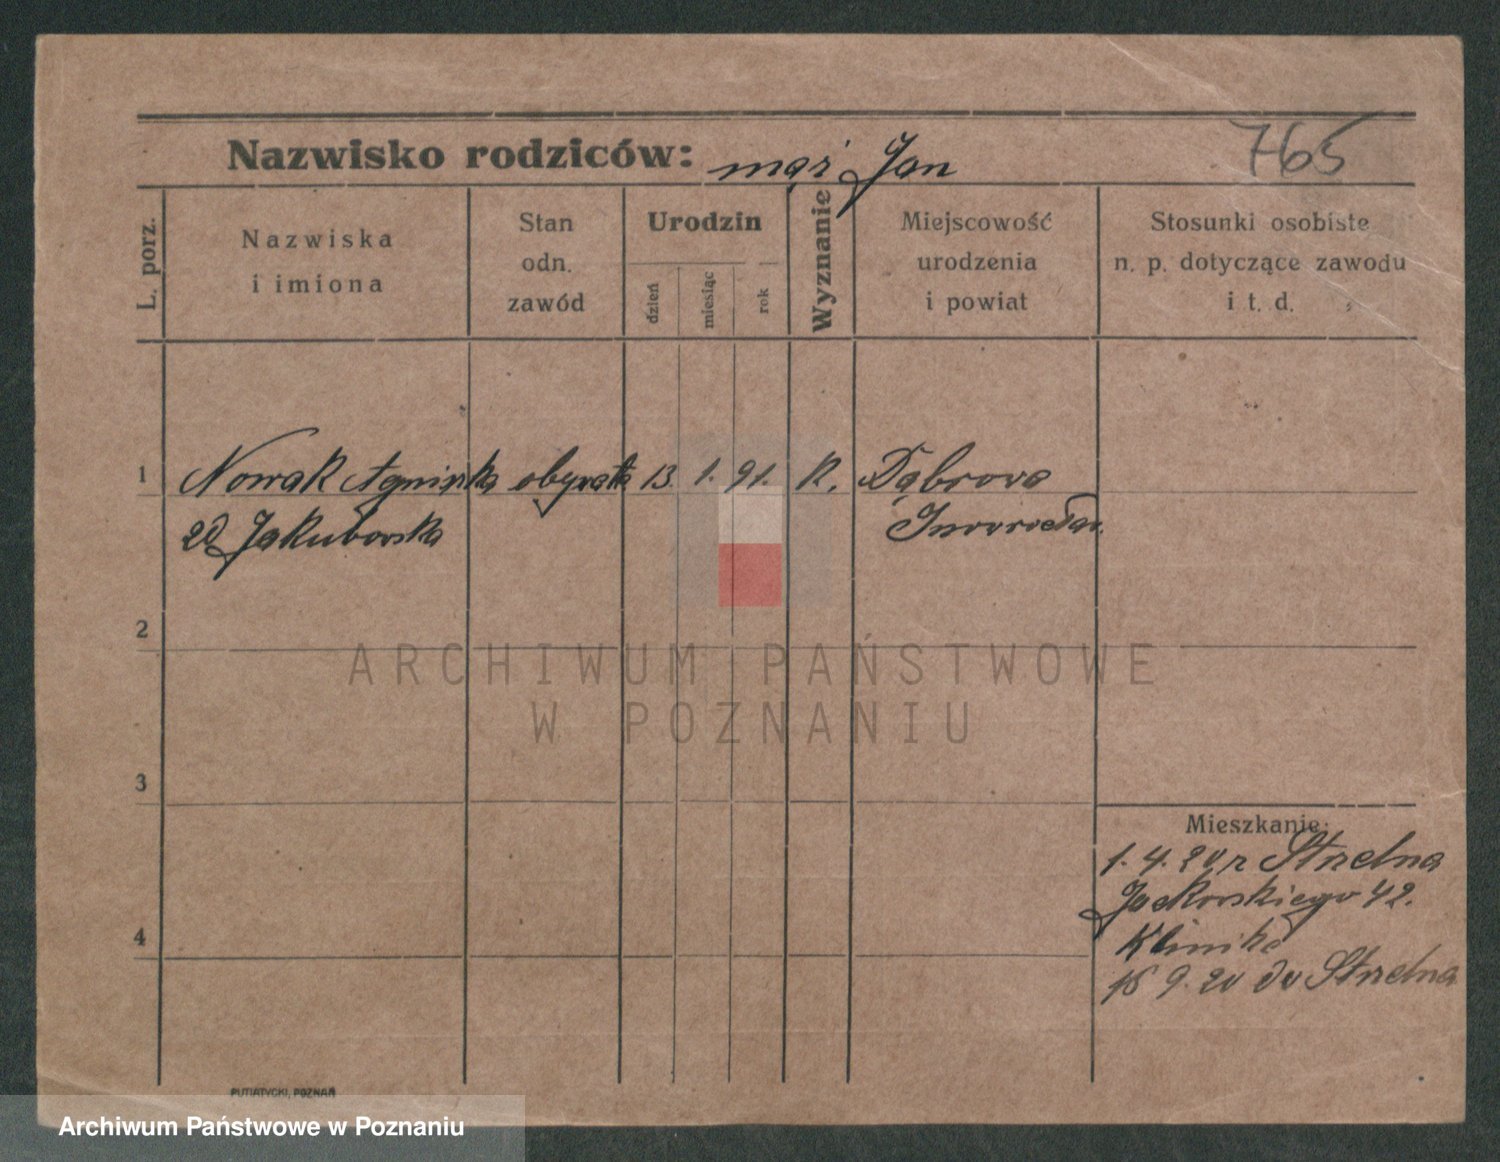 Nazwisko rodziców: mąż Jan 765
L. porz.
Nazwiska
i imiona
Stan
odn.
zawód
Urodzin
dzień
miesiąc
rok
Wyznanie
Miejscowość
urodzenia
i powiat
Stosunki osobiste
n. p. dotyczące zawodu
i t. d.
1 Nowak Agnieszka 13. 1. 91. K. Dąbrowa
zd Jakubowska Inowrocław.
2
3
4
ARCHIWUM PAŃSTWOWE
W POZNANIU
Mieszkanie:
1. 4. 20 z Strzelna
Jackowskiego 42.
Klinika
9. 20 do Strzelna
PUTIATYCKI, POZNAŃ
Archiwum Państwowe w Poznaniu